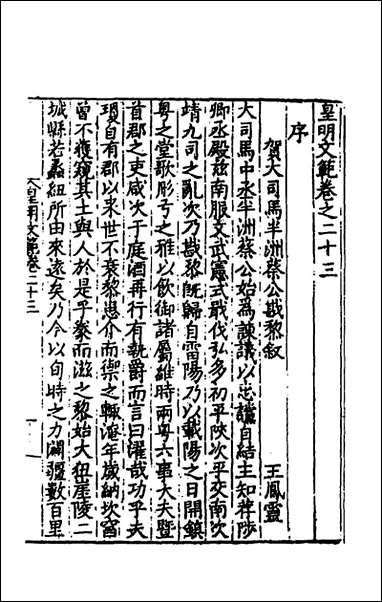 皇明文範卷之二十三
序
賀大司馬半洲蔡公戡黎叙
王鳳靈
大司馬中丞半洲蔡公始爲諫議以忠讜自結主知荐陟
卿丞殿玆南服文武憲式戡伐弘多初平陝次平交南次
靖九司之亂次乃戡黎旣歸自雷陽乃以載陽之日開鎮
粤之堂歌彤弓之雅以飲御諸屬維時兩粤六事大夫曁
首郡之吏咸次于庭酒再行有執爵而言曰濯哉功乎夫
瓊自有郡以來世不衰黎患介而禦之輙淹年歲納坎窞
曾不獲窺其土與人於是乎豢而滋之黎始大狃崖陵二
城縣若蟊紐所由來遠矣乃今以旬時之力闢疆數百里
皇明文範卷二十三
一